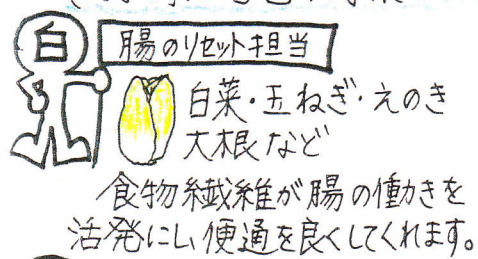 白
腸のリセット担当
白菜・玉ねぎ・えのき
大根など
食物繊維が腸の働きを
活発にし、便通を良くしてくれます。